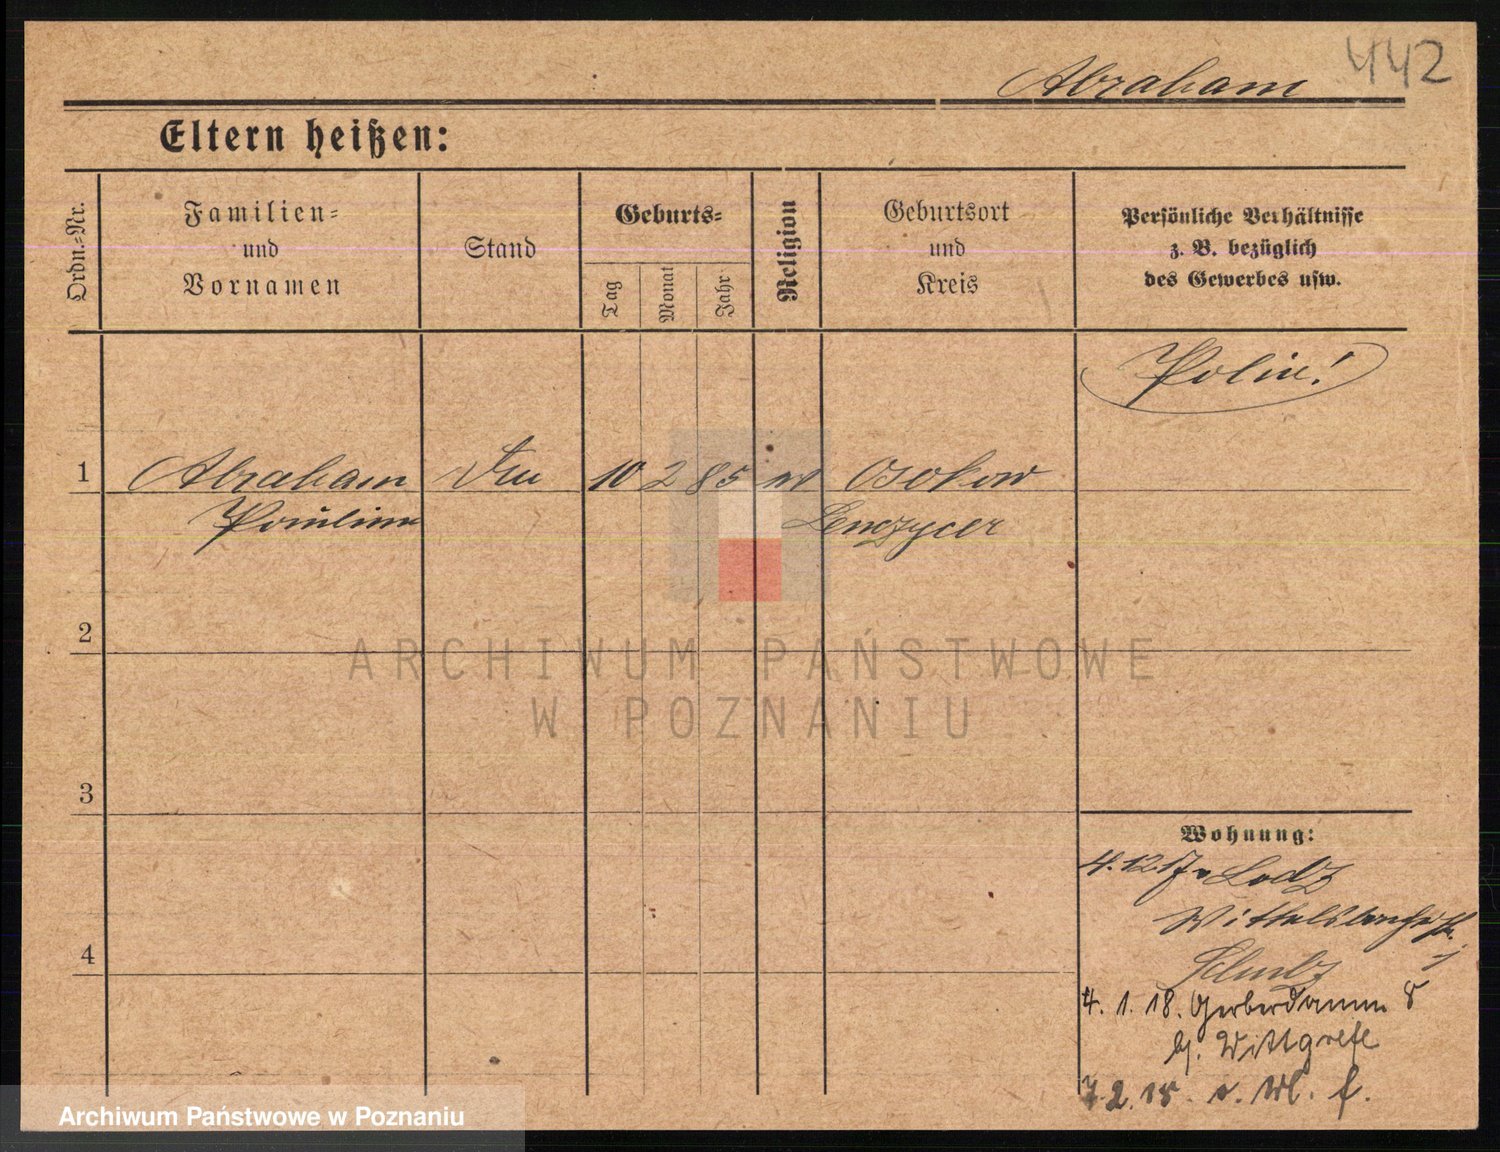 442
Abraham
Eltern heißen:
Ordn.-Nr.
Familien-
und
Vornamen
Stand
Geburts-
Tag
Monat
Jahr
Religion
Geburtsort
und
Kreis
Persönliche Verhältnisse
z. B. bezüglich
des Gewerbes usw.
Polin!
1 Abraham 10 2 85 Osokow
Pauline Lenczycer
2
ARCHIWUM PAŃSTWOWE
W POZNANIU
3
Wohnung:
4. 12 17 v Lodz
4
Schulz
4. 1. 18. Gerberdamm 8
b/. Wittgrefe
7. 2. 18.
Archiwum Państwowe w Poznaniu